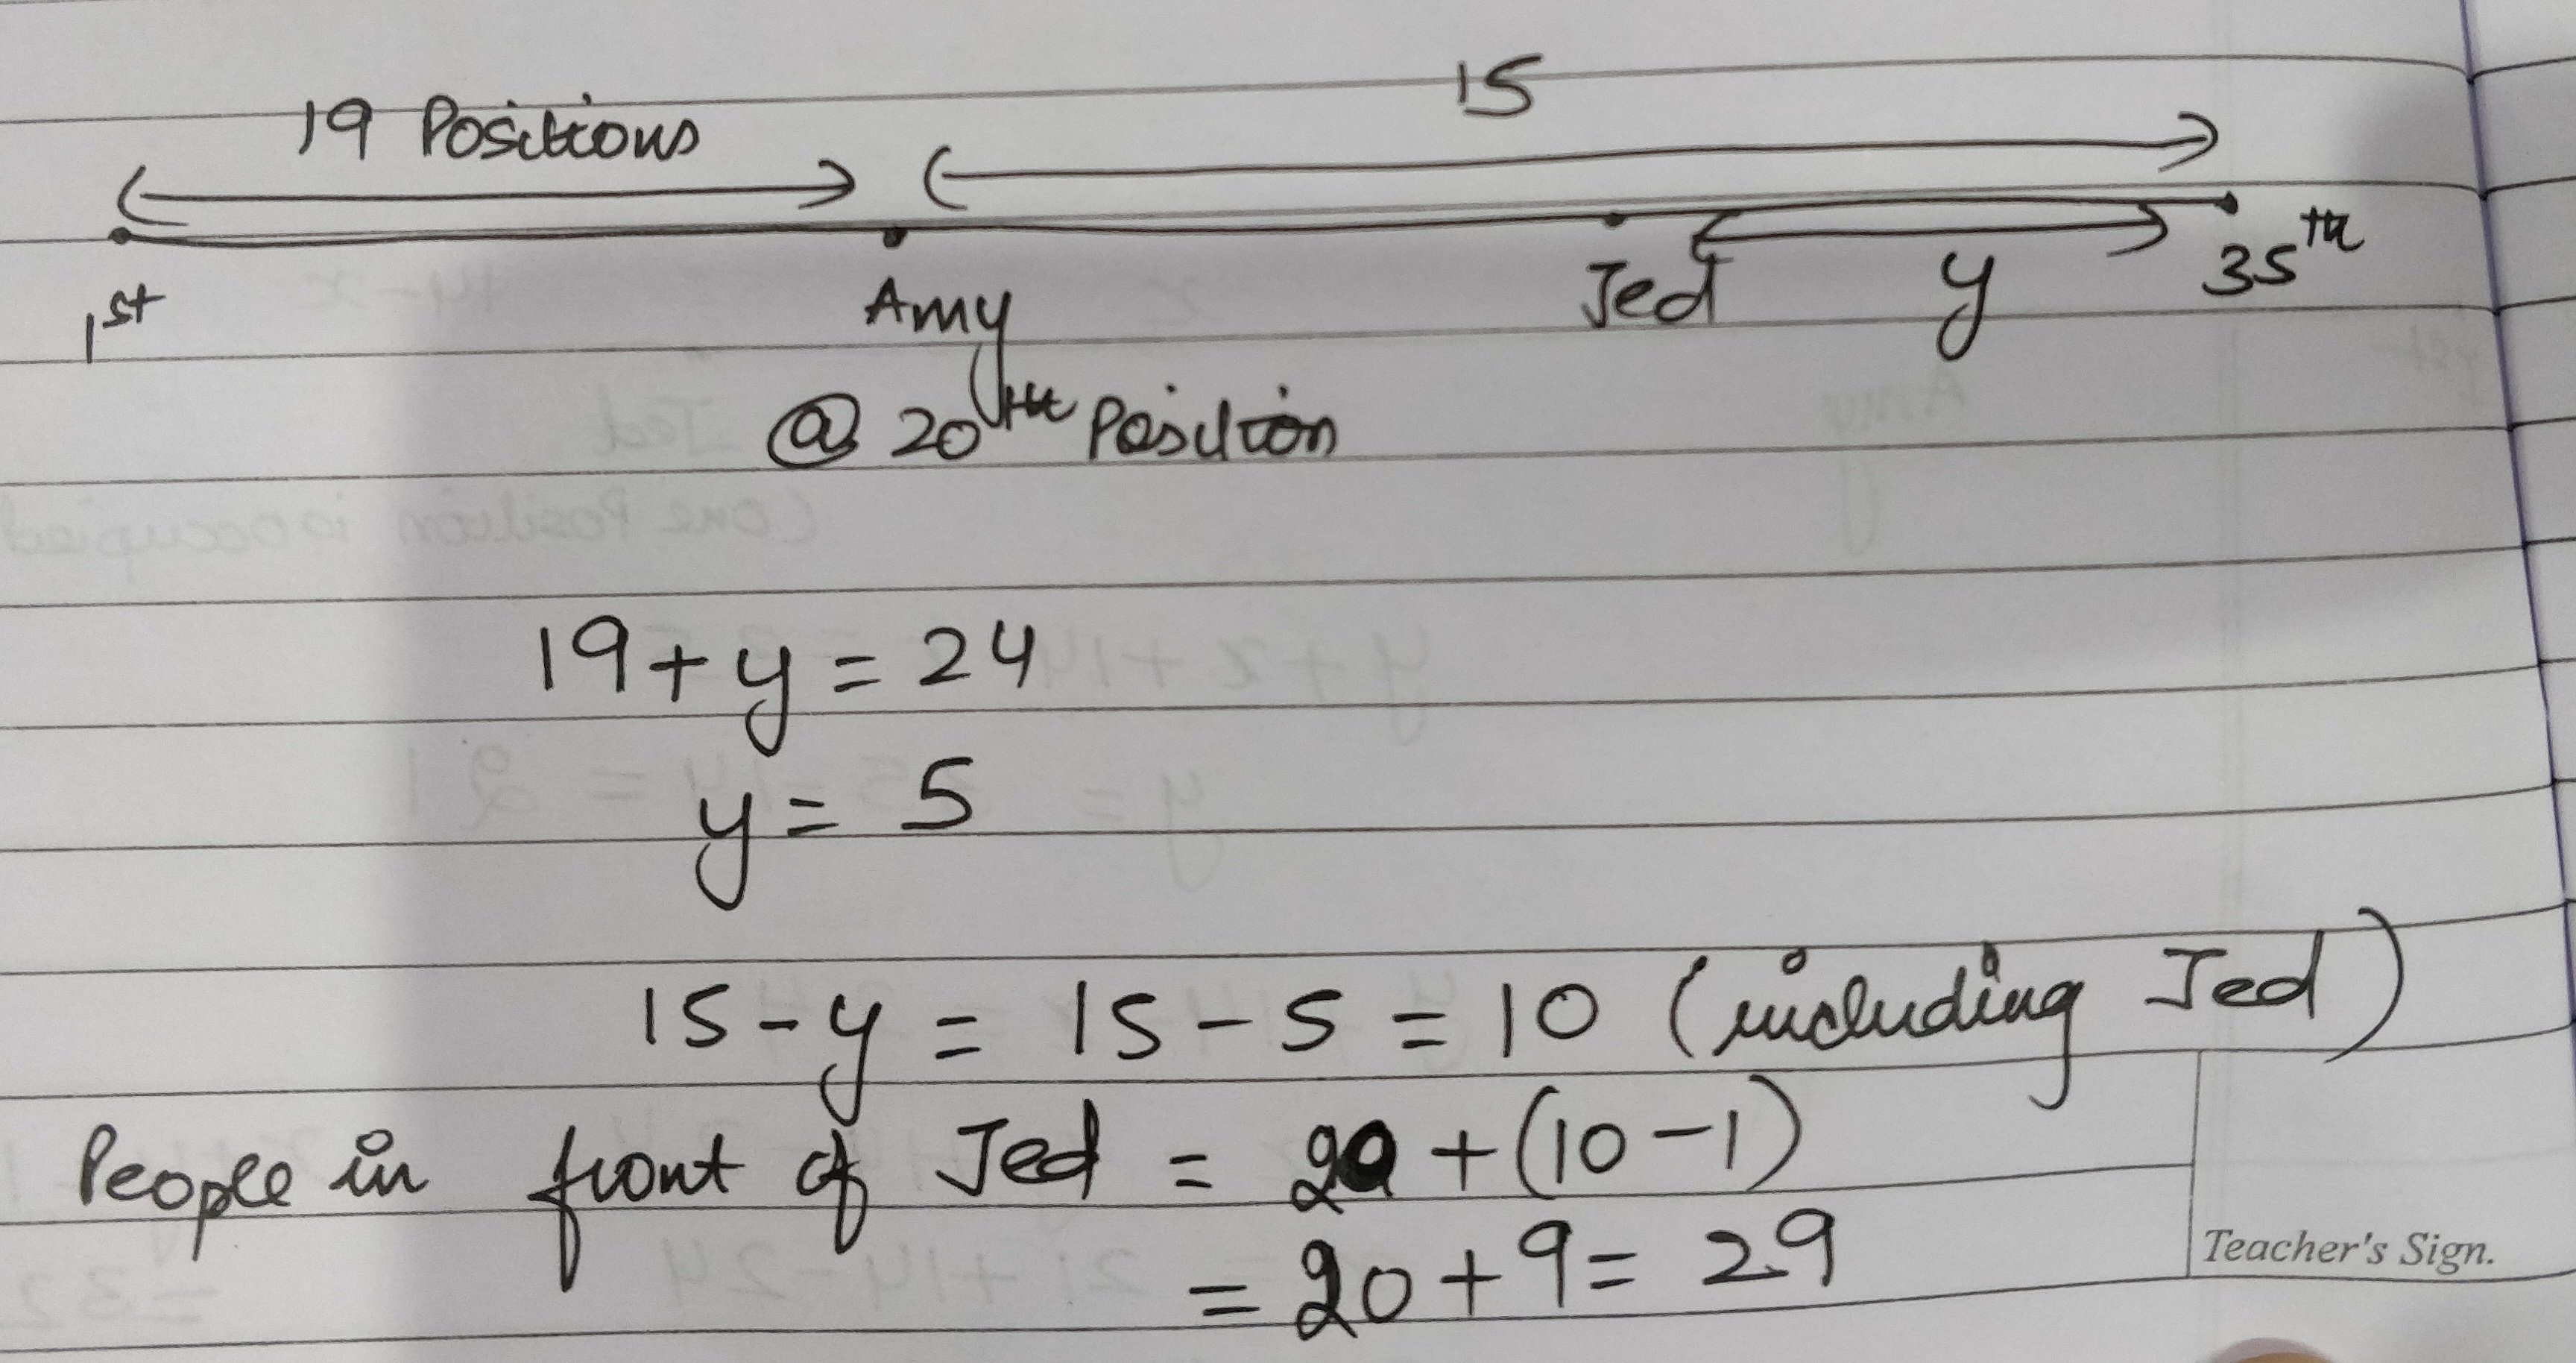 19 Positions
15
1st
Amy
Jed
y
35th
@ 20th Position
19 + y = 24
y = 5
15 - y = 15 - 5 = 10 (including Jed)
People in front of Jed = 20 + (10 - 1)
= 20 + 9 = 29
Teacher's Sign.